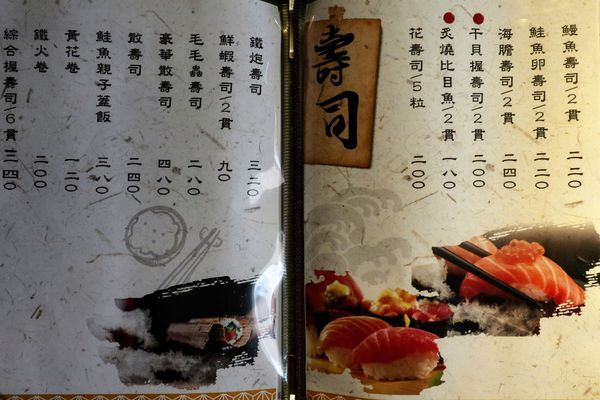 鰻魚壽司/2貫 二二0
鮭魚卵壽司/2貫 二二0
海膽壽司/2貫 二四0
干貝握壽司/2貫 二00
炙燒比目魚/2貫 一八0
花壽司/5粒 二00
壽司
鐵炮壽司 三二0
鮮蝦壽司/2貫 九0
毛毛蟲壽司 二八0
豪華散壽司 四八0
散壽司 二四0
鮭魚親子蓋飯 三八0
黃花卷 一二0
鐵火卷 二00
綜合握壽司/6貫 三四0